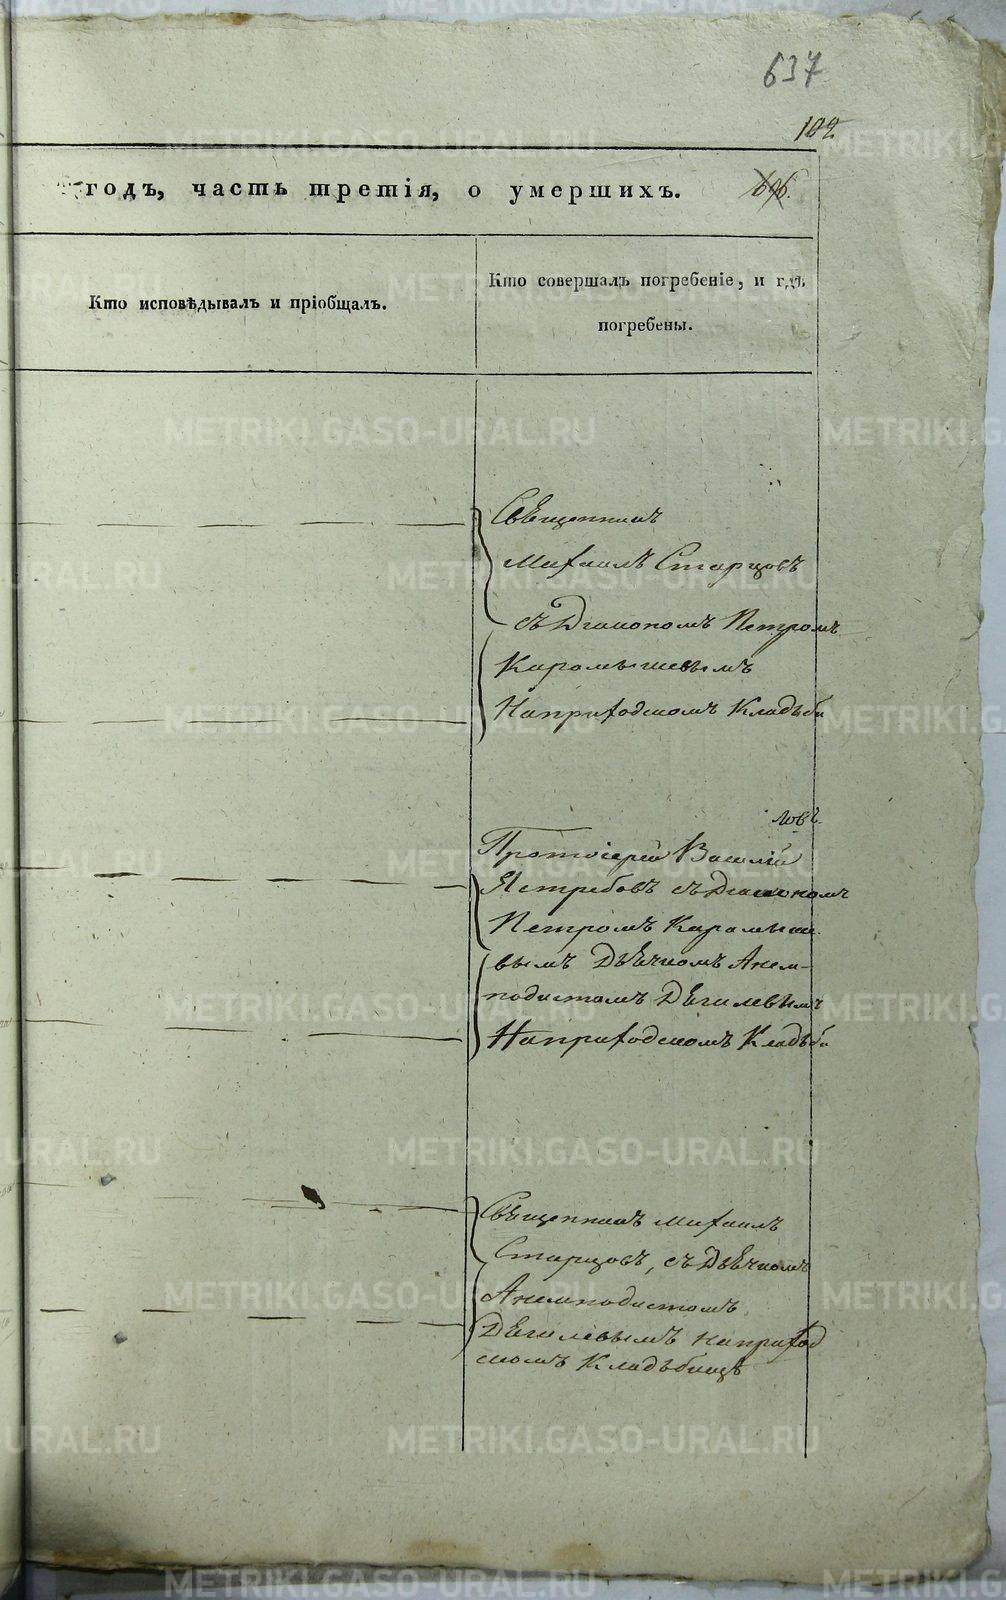 637
102
годъ, часть третія, о умершихъ.
606.
Кто исповѣдывалъ и пріобщалъ.
Кто совершалъ погребеніе, и гдѣ
погребены.
Священникъ
Михаилъ Старцовъ
съ Діакономъ Петромъ
Карамышевымъ
На приходскомъ Кладьби
Протоіерей Василій
Ястребовъ съ Діакономъ
Петромъ Карамыше
вымъ Дьячкомъ Анем-
подистомъ Дегилевымъ
На приходскомъ Кладьби
Священникъ Михаилъ
Старцовъ, съ Дьячкомъ
Анемподистомъ
Дегилевымъ на приход
скомъ Кладьбищѣ
METRIKI.GASO-URAL.RU